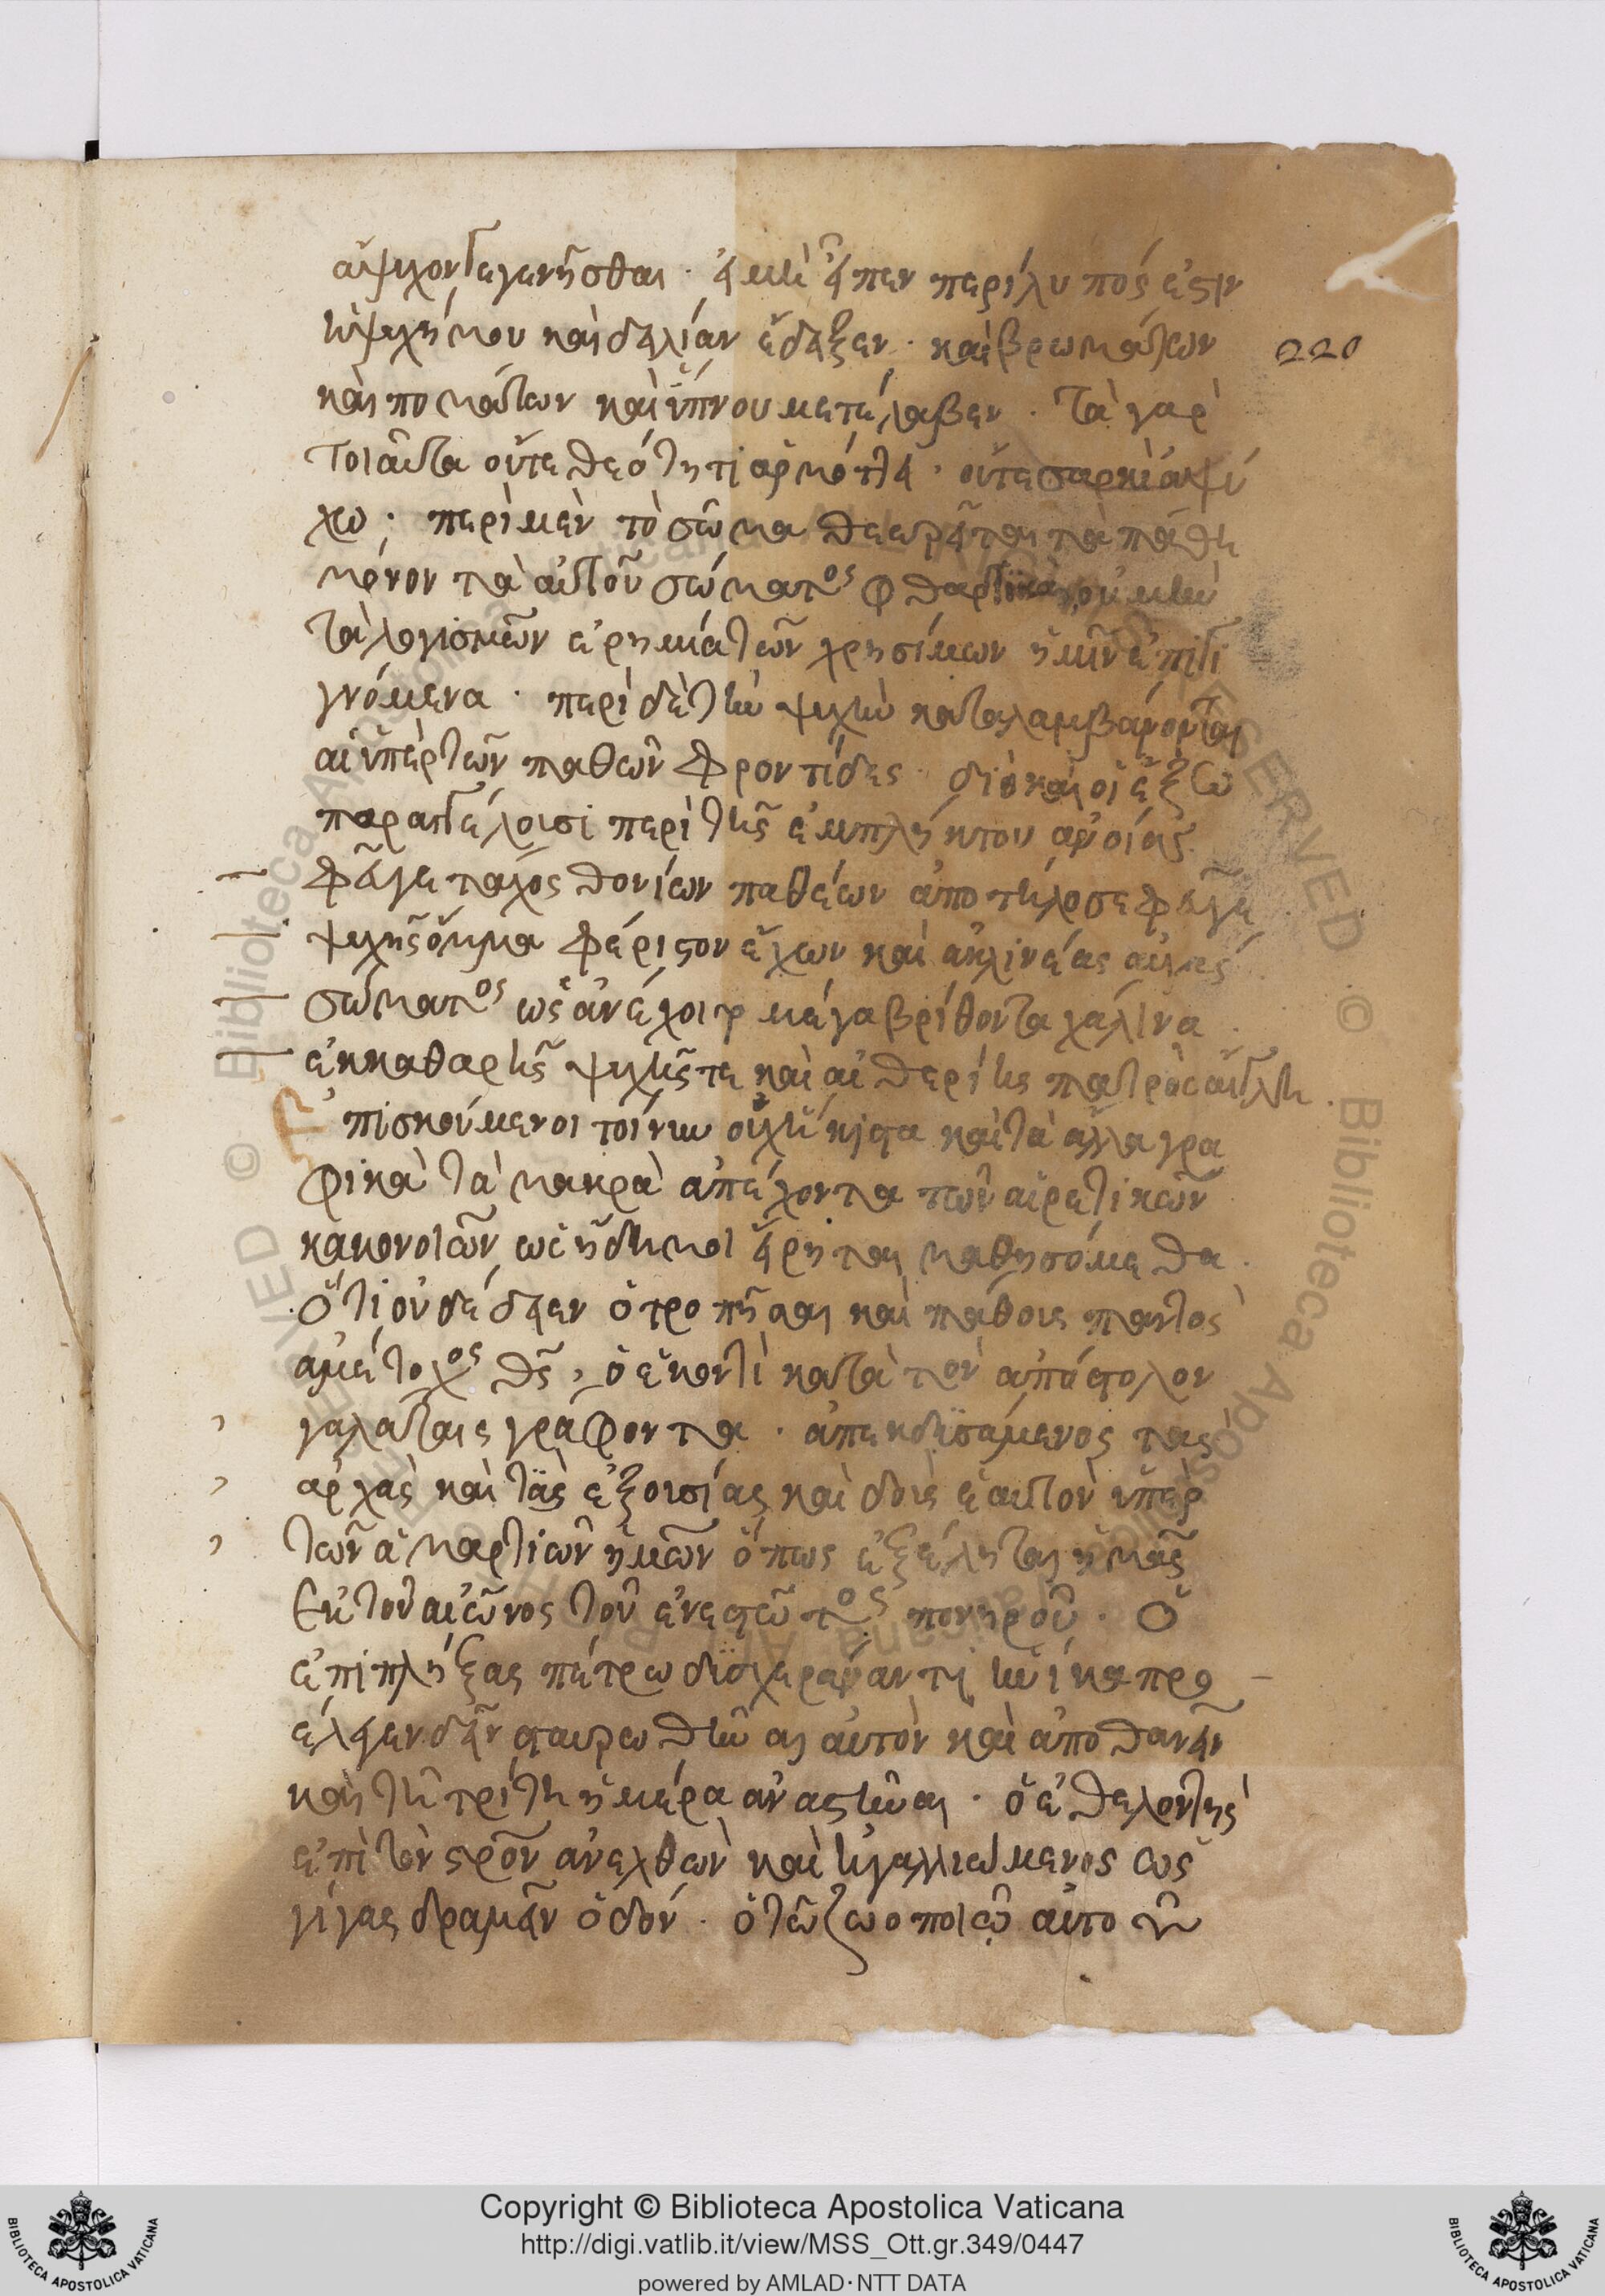 ἄψυχόν τε γενῆσθαι · εἰ μὴ εἶπεν περίλυπός ἐστιν
ἡ ψυχή μου καὶ δειλίαν ἔδειξεν · καὶ βρωμάτων
220
καὶ πομάτων καὶ ὕπνου μετέλαβεν · τὰ γὰρ
τοιαῦτα οὔτε θεότητι ἁρμόττει · οὔτε σαρκὶ ἀψύ
χω · περὶ μὲν τὸ σῶμα θεωρεῖται τὰ πάθη
μόνον τὰ αὐτοῦ σώματος φθαρτικὰ, οὐ μὴν
τὰ λογισμῶν ἐρημία τῶν χρησίμων ἡμῖν ἐπιγι
γνόμενα · περὶ δὲ τὴν ψυχὴν καταλαμβάνονται
αἱ ὑπὲρ τῶν παθῶν φροντίδες · διὸ καὶ οἱ ἔξω
παραγγέλουσι περὶ τῆς ἐμπλήκτου ἀνοίας
φεῦγε τάχος θονίων παθέων ἀπὸ τηλόσε φεῦγε
ψυχῆς ὄμμα φέριστον ἔχων καὶ ἀκλινέας αὐγάς
σώματος ὡς ἀνέχοιτο μέγα βρίθοντα χάλινα
ἐκ καθαρῆς ψυχῆς τε καὶ αἰθερίης πατρὸς αἴγλη
πισκούμενοι τοίνυν οὐχ ἥκιστα καὶ τὰ ἄλλα γρα
φικὰ τὰ μακρὰ ἀπέχοντα τῶν αἱρετικῶν
κακονοιῶν, ὡς ἤδη μοι εἴρηται μαθησόμεθα.
Ὅτι οὐδέδιεν ὁ τροπῆς καὶ πάθους παντὸς
ἀμέτοχος θς, ὁ ἑκοντὶ κατὰ τὸν ἀπόστολον
γαλάταις γράφοντα · ἀπεκδϋσάμενος τὰς
ἀρχὰς καὶ τὰς ἐξουσίας καὶ δοὺς ἑαυτὸν ὑπὲρ
τῶν ἁμαρτιῶν ἡμῶν ὅπως ἐξέληται ἡμᾶς
ἐκ τοῦ αἰῶνος τοῦ ἐνεστῶτος πονηροῦ · Ὁ
ἐπιπλήξας πέτρω δϋσχεράναντι ἡνίκα προ
έλεγεν δεῖν σταυρωθῆναι αὐτὸν καὶ ἀποθανεῖν
καὶ τῆ τρίτη ἡμέρα ἀναστῆναι · ὁ ἐθελοντὴς
ἐπὶ τὸν σρὸν ἀνελθὼν καὶ ἠγαλλιώμενος ὡς
γίγας δραμεῖν ὁδόν · ὁ τῶ ζωοποιῶ αὐτοῦ
Copyright © Biblioteca Apostolica Vaticana
http://digi.vatlib.it/view/MSS_Ott.gr.349/0447
powered by AMLAD·NTT DATA
BIBLIOTECA APOSTOLICA VATICANA
BIBLIOTECA APOSTOLICA VATICANA